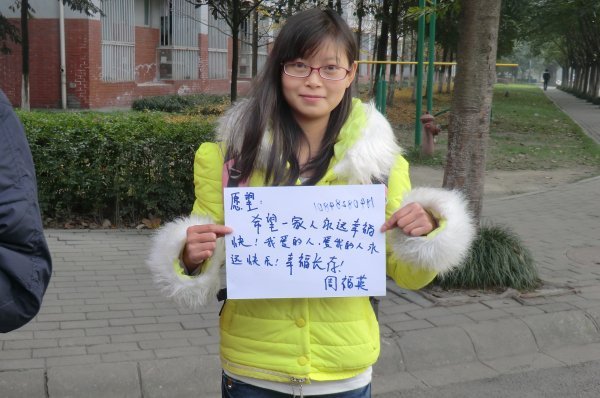 愿望:
希望一家人永远幸福
快!我爱的人,爱我的人永
远快乐!幸福长存!
周福英